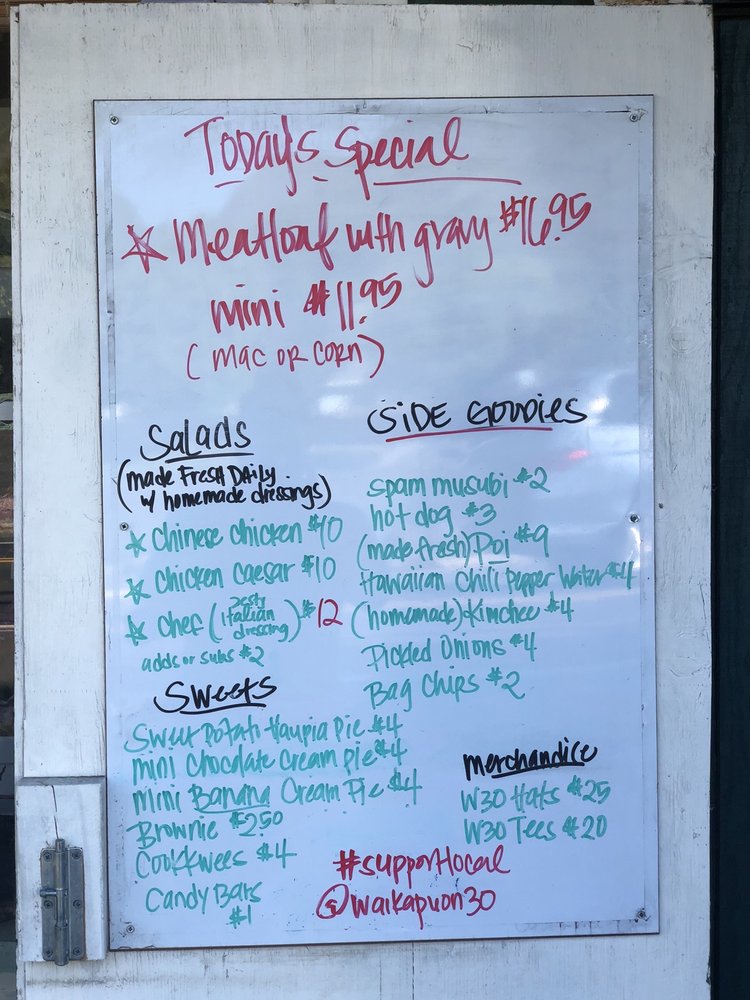 Today's Special
☆ Meatloaf with gravy $16.95
mini $11.95
(mac or corn)
Salads
(made fresh daily
w/ homemade dressings)
☆ Chinese chicken $10
☆ Chicken Caesar $10
☆ Chef (zesty italian dressing) $12
adds or subs $2
Sweets
Sweet Potato Haupia Pie $4
mini Chocolate Cream Pie $4
mini Banana Cream Pie $4
Brownie $2.50
Cookkwees $4
Candy Bars
$1
Side Goodies
Spam musubi $2
hot dog $3
(made fresh) Poi $9
Hawaiian Chili Pepper Water $4
(homemade) Kimchee $4
Pickled Onions $4
Bag Chips $2
Merchandice
W30 Hats $25
W30 Tees $20
#supportlocal
@waikapuon30